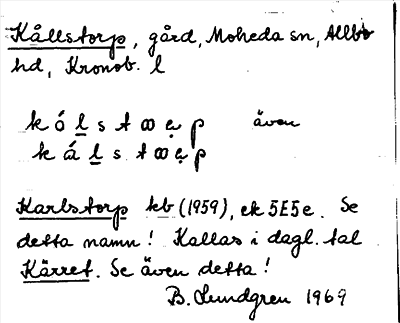 Kållstorp, gård, Moheda sn, Allbo
hd, Kronob. l
k ó l s t ω ę p även
k á l s t ω ę p
Karlstorp kb (1959), ek 5E5e. Se
detta namn! Kallas i dagl. tal
Kärret. Se även detta!
B. Lundgren 1969